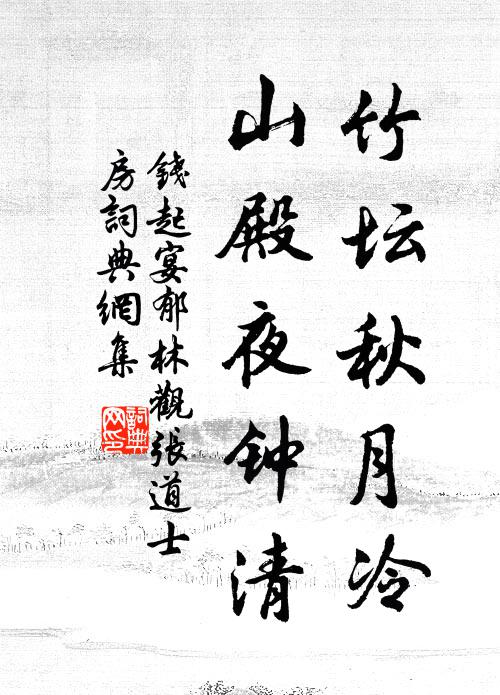 竹坛秋月冷
山殿夜钟清
錢起宴郁林觀張道士
房詞典網集
詞典网印